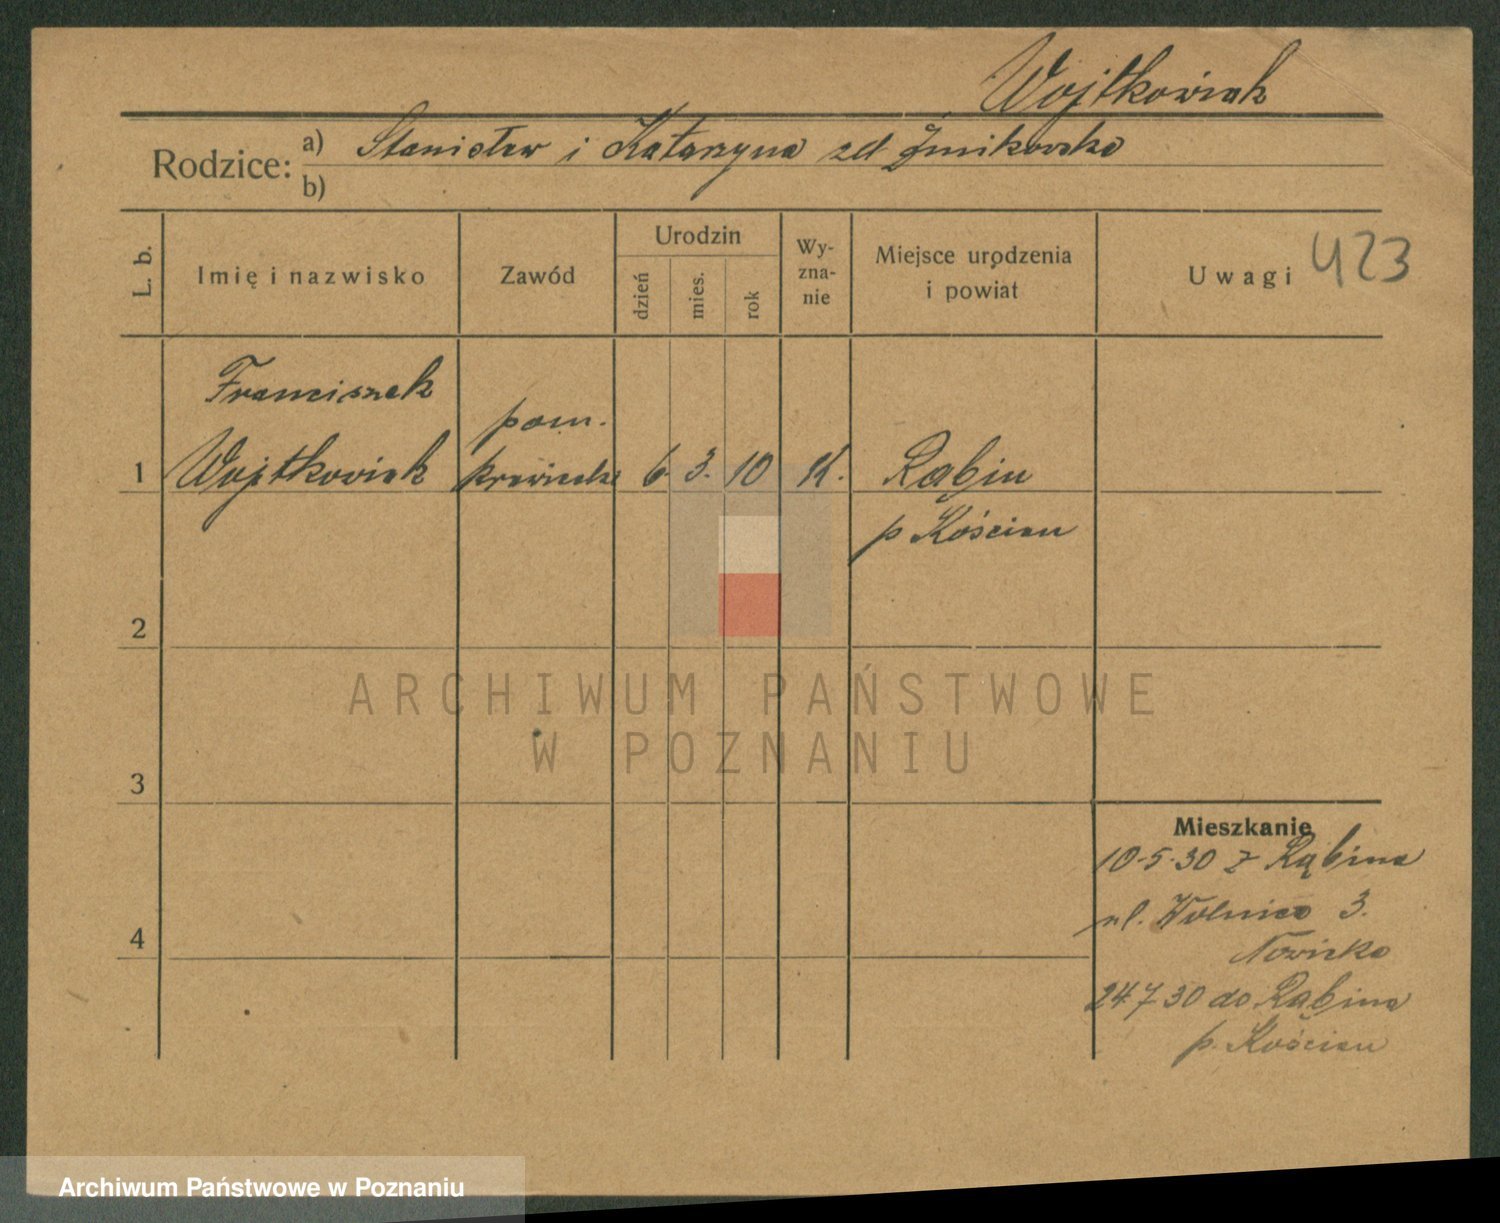 Wojtkowiak
Rodzice: a) Stanisław i Katarzyna zd Żmikowska
b)
L. b. Imię i nazwisko Zawód Urodzin dzień mies. rok Wy-zna-nie Miejsce urodzenia i powiat Uwagi 423
Franciszek
pom.
1 Wojtkowiak krawiecki 6. 3. 10 K. Rąbiń
p Kościan
2
ARCHIWUM PAŃSTWOWE
W POZNANIU
3
Mieszkanie
10-5-30 z Rąbinia
ul. Wolnica 3.
Nowicka
4
24 7 30 do Rąbinia
p. Kościan
Archiwum Państwowe w Poznaniu